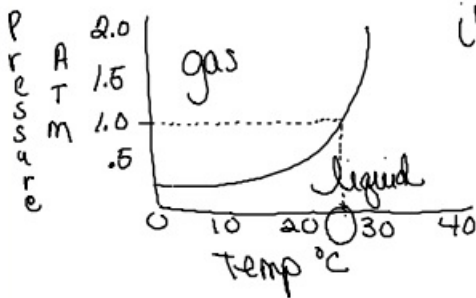 Pressure
ATM
2.0
1.5
1.0
.5
gas
liquid
0 10 20 30 40
Temp °C